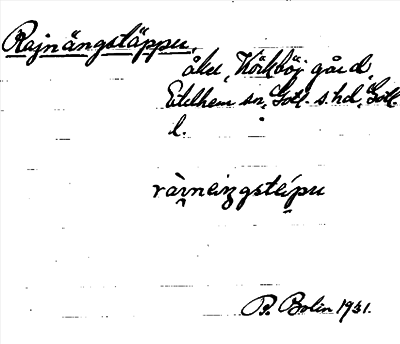 Rajnängstäppu,
åker, Hörkböj gård,
Etelhem sn, Gotl. s. hd, Gotl.
l.
ràinei̯ŋgsteípu
B. Bolin 1931.